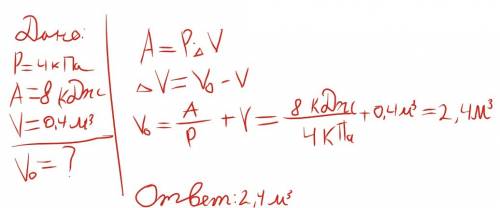 Дано:
P=4кПа
A=8 кДж
V=0,4м³
V₀=?
A=P△V
△V=V₀-V
V₀=A/P+V=8 кДж/4 кПа+0,4м³=2,4м³
Ответ:2,4м³